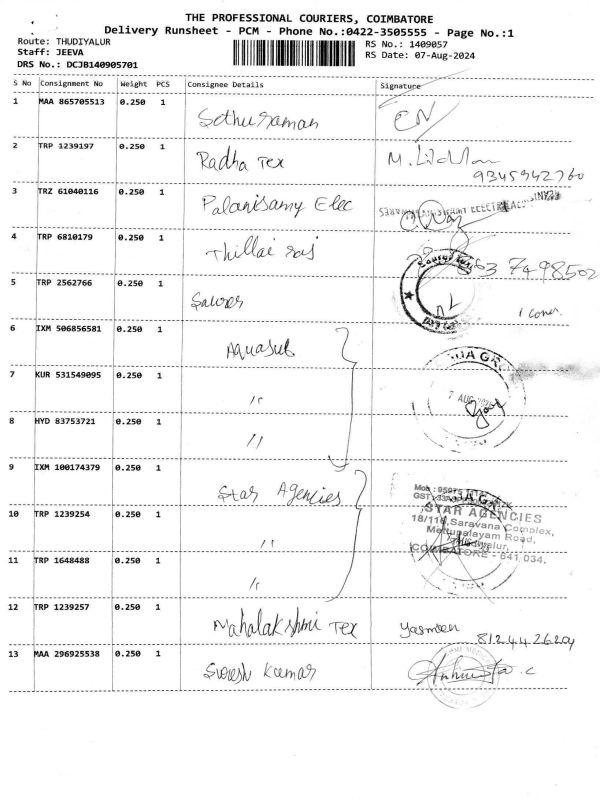 THE PROFESSIONAL COURIERS, COIMBATORE
Delivery Runsheet - PCM - Phone No.:0422-3505555 - Page No.:1
Route: THUDIYALUR
Staff: JEEVA
DRS No.: DCJB140905701
RS No.: 1409057
RS Date: 07-Aug-2024
S No Consignment No Weight PCS Consignee Details Signature
1 MAA 865705513 0.250 1 Sethuraman
2 TRP 1239197 0.250 1 Radha Tex 9345942760
3 TRZ 61040116 0.250 1 Palanisamy Elec
4 TRP 6810179 0.250 1 Thillai raj
5 TRP 2562766 0.250 1 Saurer 1 cover
6 IXM 506856581 0.250 1 Aquasub
7 KUR 531549095 0.250 1 "
7 AUG
8 HYD 83753721 0.250 1 "
9 IXM 100174379 0.250 1 Star Agencies
STAR AGENCIES
18/116, Saravana Complex,
Mettupalayam Road,
Thudiyalur,
COIMBATORE - 641 034.
10 TRP 1239254 0.250 1 "
11 TRP 1648488 0.250 1 "
12 TRP 1239257 0.250 1 Mahalakshmi Tex Yasmeen
13 MAA 296925538 0.250 1 Suresh Kumar